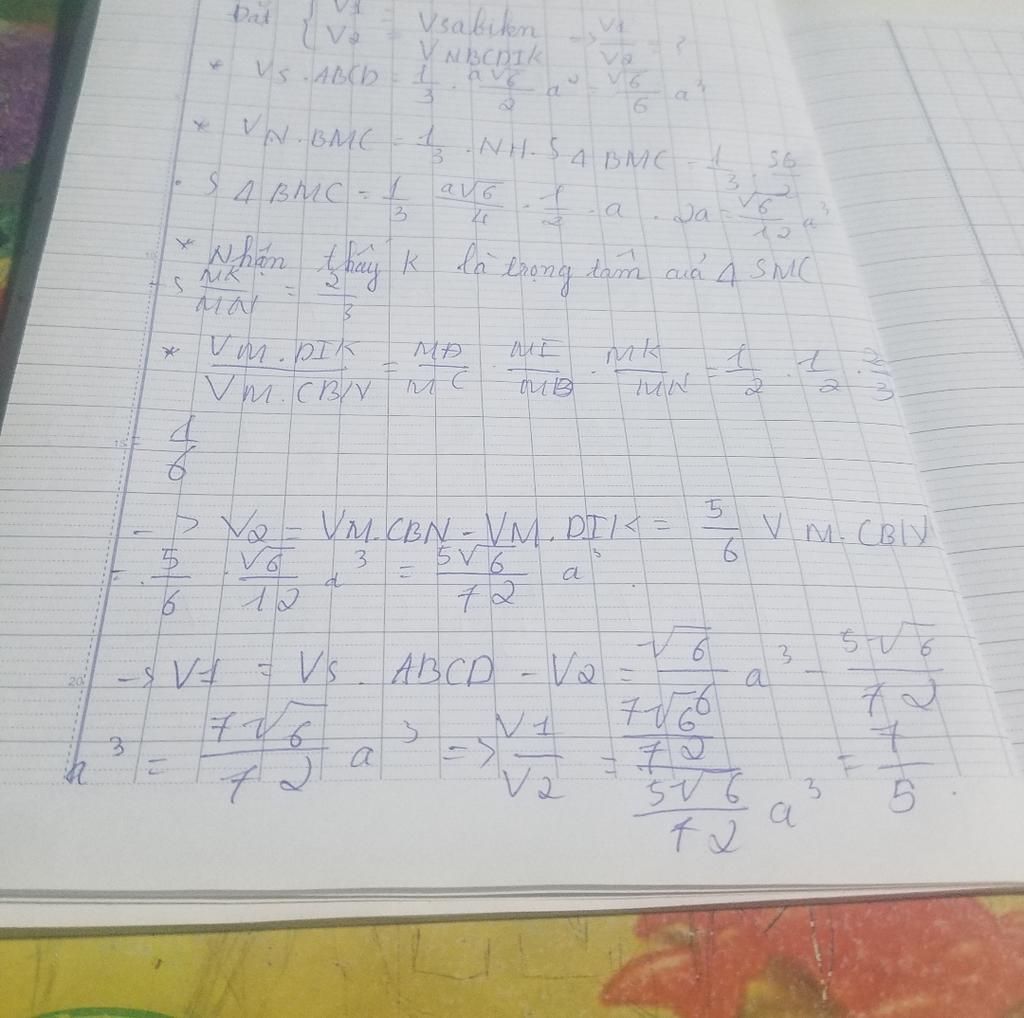 Đặt { V1 = VSABIKN
V2 = VNBCDIK => V1/V2 = ?
* VS.ABCD = 1/3 . a√6/2 a² = √6/6 a³
* VN.BMC = 1/3 . NH . SΔBMC = 1/3 .
. SΔBMC = 1/3 a√6/4 . 1/2 . a . 2a = √6/12 a³
* Nhận thấy K là trọng tâm của Δ SMC
-> MK/MN = 2/3
* VM.DIK/VM.CBN = MD/MC . MI/MB . MK/MN = 1/2 . 1/2 . 2/3
= 1/6
-> V2 = VM.CBN - VM.DIK = 5/6 VM.CBN
= 5/6 . √6/12 a³ = 5√6/72 a³
-> V1 = VS.ABCD - V2 = √6/6 a³ - 5√6/72
a³ = 7√6/72 a³ => V1/V2 = 7√6/72 / 5√6/72 a³ = 7/5 .